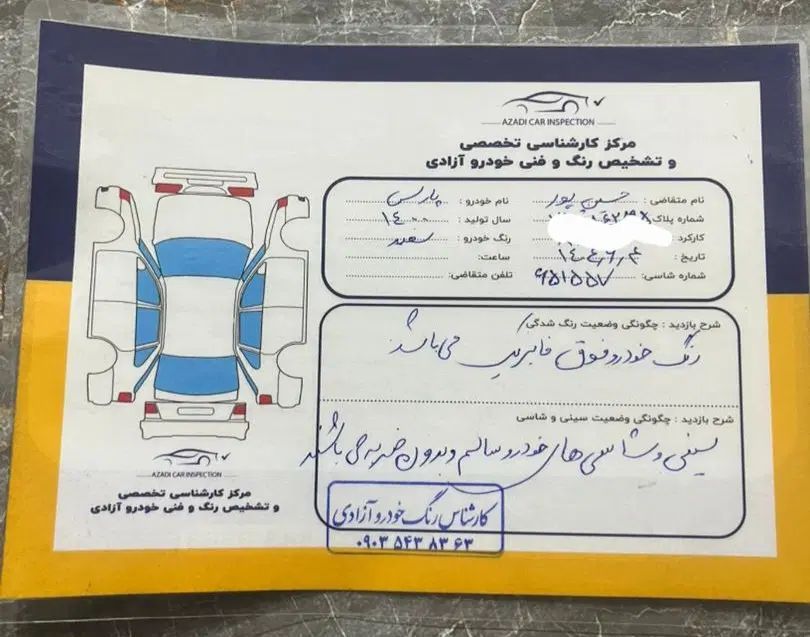 AZADI CAR INSPECTION
مرکز کارشناسی تخصصی
و تشخیص رنگ و فنی خودرو آزادی
نام متقاضی : حسن پور نام خودرو : پارس
شماره پلاک سال تولید : ۱۴۰۰
کارکرد رنگ خودرو : سفید
تاریخ : ساعت:
شماره شاسی: ۶۵۱۵۵۷ تلفن متقاضی:
شرح بازدید : چگونگی وضعیت رنگ شدگی
رنگ خودرو فوق فابریک می باشد
شرح بازدید : چگونگی وضعیت سینی و شاسی
سینی و شاسی های خودرو سالم و بدون ضربه می باشند
کارشناس رنگ خودرو آزادی
۰۹۰۳ ۵۴۳ ۸۳ ۶۳
AZADI CAR INSPECTION
مرکز کارشناسی تخصصی
و تشخیص رنگ و فنی خودرو آزادی